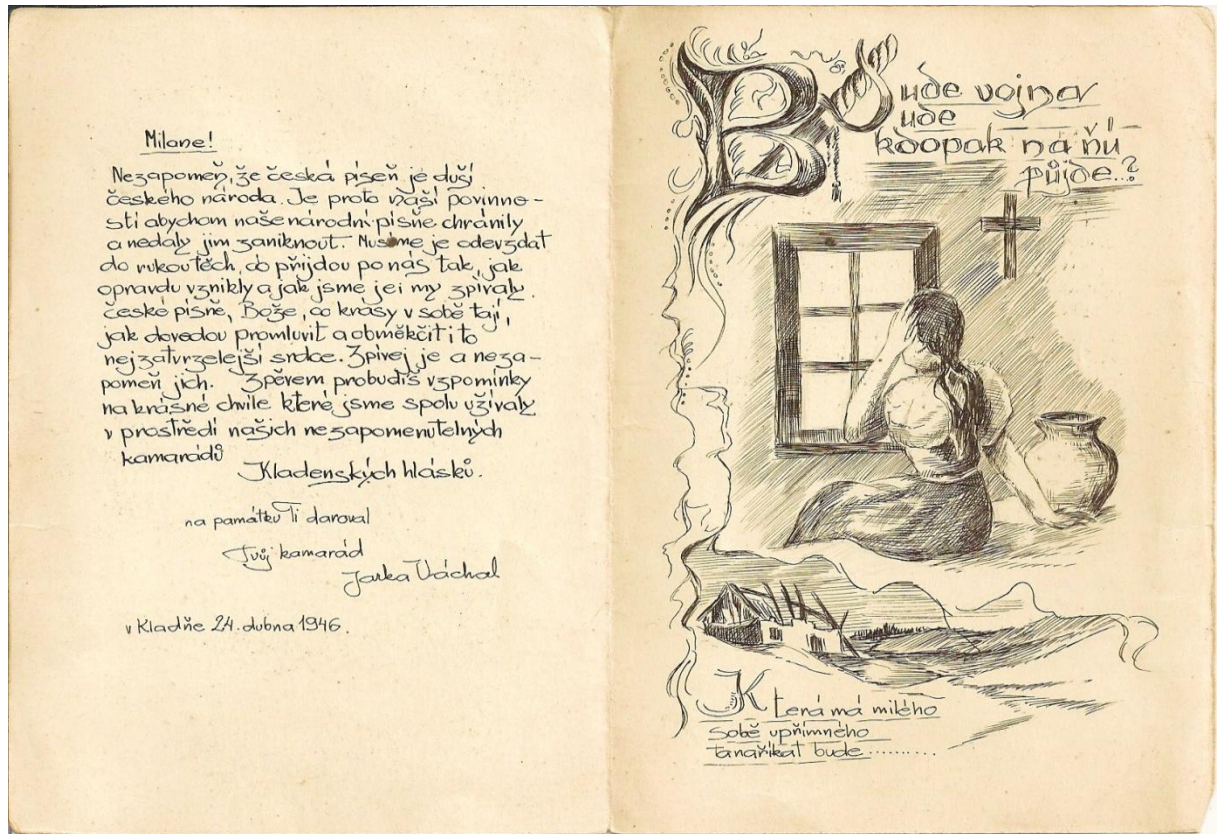 Milane!
Nezapomeň, že česká píseň je duší
českého národa. Je proto naší povinno-
stí abychom naše národní písně chránily
a nedaly jim zaniknout. Musíme je odevzdat
do rukou těch, co přijdou po nás tak, jak
opravdu vznikly a jak jsme jei my zpívaly.
České písně, Bože, co krásy v sobě tají,
jak dovedou promluvit a obměkčit i to
nejzatvrzelejší srdce. Zpívej je a neza-
pomeň jich. Zpěvem probudíš vzpomínky
na krásné chvíle které jsme spolu užívaly
v prostředí našich nezapomenutelných
kamarádů
Kladenských hlásků.
na památku Ti daroval
Tvůj kamarád
Jarka Váchal
v Kladňe 24. dubna 1946.
Bude vojna
Bude
kdopak na ňí
půjde...?
Která má milého
sobě upřímného
ta naříkat bude..........